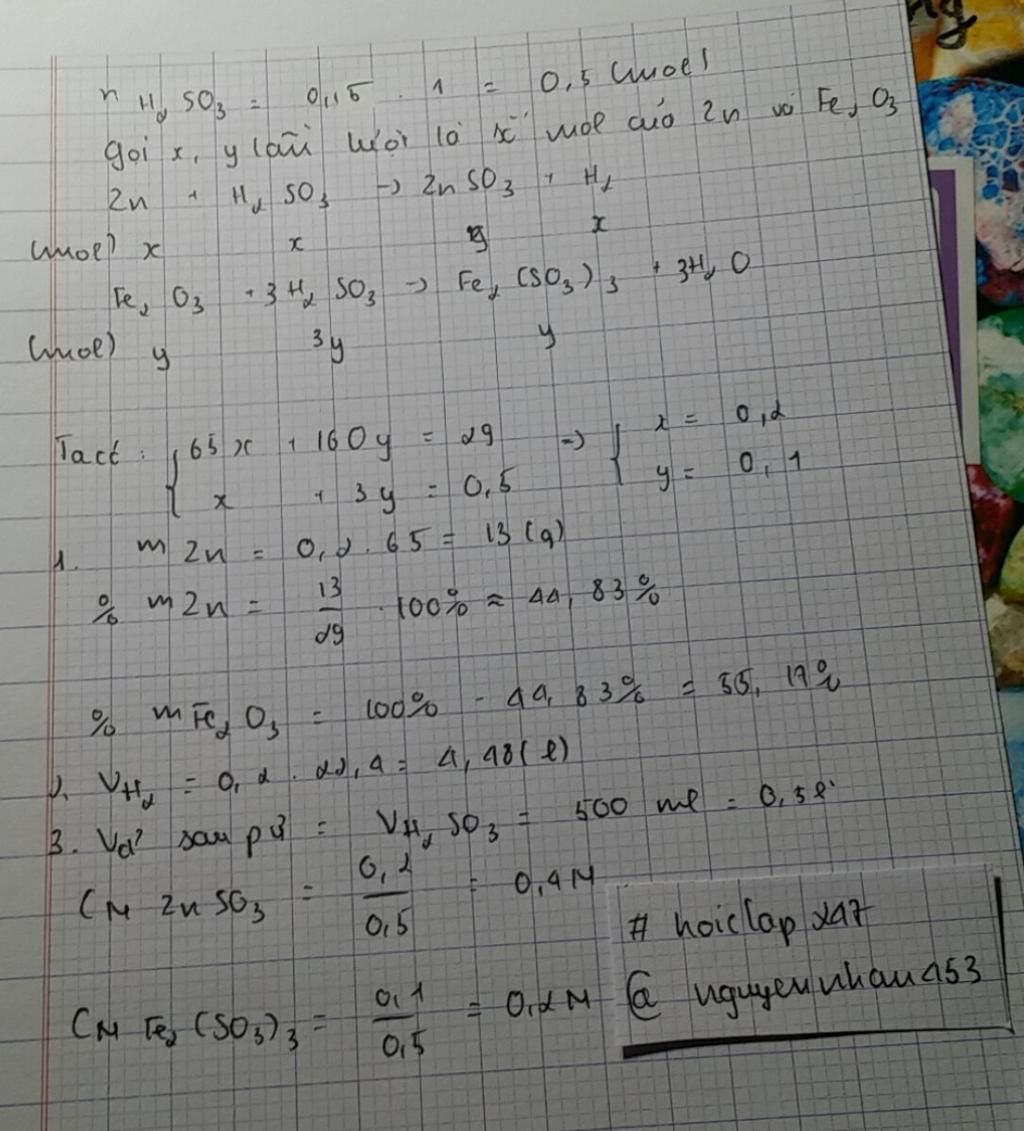 n H₂SO₃ = 0,5 . 1 = 0,5 (mol)
gọi x, y lần lượt là số mol của Zn và Fe₂O₃
Zn + H₂SO₃ → ZnSO₃ + H₂
(mol) x x x
Fe₂O₃ + 3H₂SO₃ → Fe₂(SO₃)₃ + 3H₂O
(mol) y 3y y
Ta có : { 65x + 160y = 29 => { x = 0,2
x + 3y = 0,5 y = 0,1
1. m Zn = 0,2 . 65 = 13 (g)
% m Zn = 13/29 . 100% ≈ 44,83%
% m Fe₂O₃ = 100% - 44,83% = 55,17%
2. V H₂ = 0,2 . 22,4 = 4,48 (l)
3. Vd² sau pứ = V H₂SO₃ = 500 ml = 0,5l
CM ZnSO₃ = 0,2/0,5 = 0,4M
CM Fe₂(SO₃)₃ = 0,1/0,5 = 0,2M
# hoiclap247
@ nguyennhan453